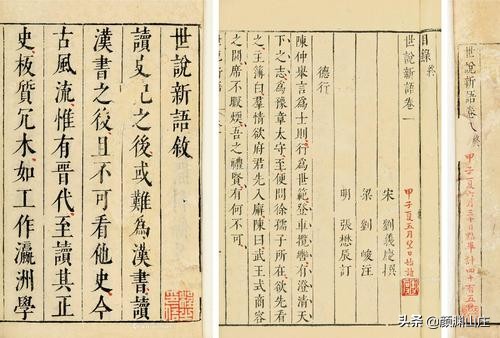 世說新語敘
讀史記之後或難為漢書讀
漢書之後且不可看他史今
古風流惟有晉代至讀其正
史板質冗木如工作瀛洲學
目錄終
世說新語卷一
宋 劉義慶撰
梁 劉峻注
明 張懋辰訂
甲子夏五月望日始讀
德行
陳仲舉言為士則行為世範登車攬轡有澄清天
下之志為豫章太守至便問徐孺子所在欲先看
之主簿白羣情欲府君先入廨陳曰武王式商容
之閭席不暇煖吾之禮賢有何不可
世說新語卷八終
甲子夏六月三十日點畢計四十有五
头条 @颜渊山庄